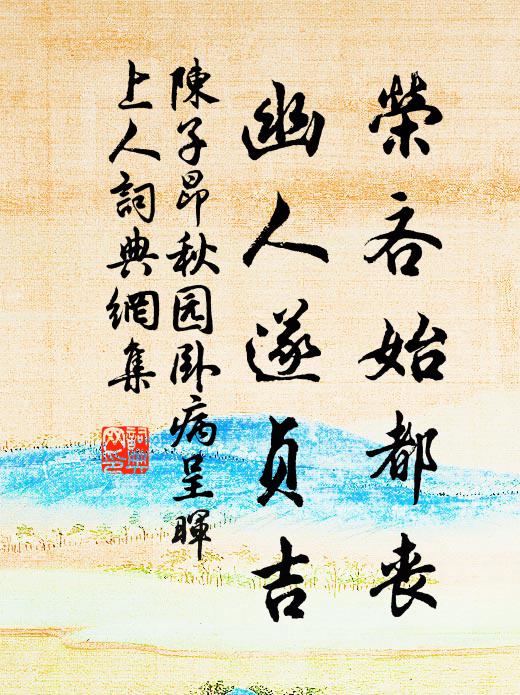 榮吝始都喪
幽人遂貞吉
陳子昂秋园卧病呈暉
上人詞典網集